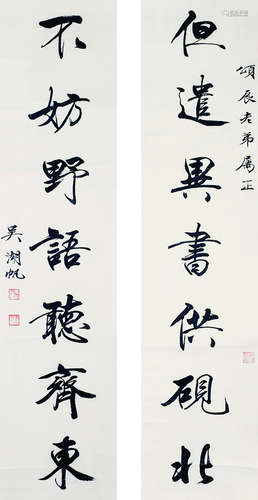 頌辰老弟属正
但遣異書供硯北
不妨野語聽齊東
吳湖帆